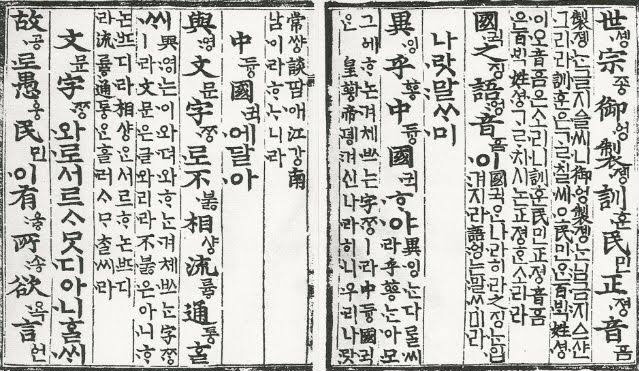 世솅宗종御ᅌᅥᆼ製졩訓훈民민正졍音ᅙᅳᆷ
製졩는글지ᅀᅳᆯ씨니御ᅌᅥᆼ製졩는님금지ᅀᅳ샨
그리라訓훈은ᄀᆞᄅᆞ칠씨오民민ᄋᆞᆫ百ᄇᆡᆨ姓셩
이오音ᅙᅳᆷ은소리니訓훈民민正졍音ᅙᅳᆷ
은百ᄇᆡᆨ姓셩ᄀᆞᄅᆞ치시논正졍ᄒᆞᆫ소리라
國귁之징語ᅌᅥᆼ音ᅙᅳᆷ이
國귁ᄋᆞᆫ나라히라之징ᄂᆞᆫ입
겨지라語ᅌᅥᆼ는말ᄊᆞ미라
나랏말ᄊᆞ미
異잉乎ᅘᅩᆼ中듕國귁ᄒᆞ야
異잉ᄂᆞᆫ다ᄅᆞᆯ씨
라乎ᅘᅩᆼᄂᆞᆫ아모
그ᅌᅦᄒᆞ논겨체ᄡᅳ는字ᄍᆞᆼㅣ라中듕國귁
ᄋᆞᆫ皇황帝뎽겨신나라히니우리나랏
常썅談땀애江강南
남이라ᄒᆞᄂᆞ니라
中듕國귁에달아
與영文문字ᄍᆞᆼ로不붏相샹流륳通통ᄒᆞᆯ
씨
與영는이와뎌와ᄒᆞ는겨체ᄡᅳ는字ᄍᆞᆼ
ㅣ라文문은글와리라不붏은아니ᄒᆞ
논ᄠᅳ디라相샹ᄋᆞᆫ서르ᄒᆞ논ᄠᅳ디
라流륳通통ᄋᆞᆫ흘러ᄉᆞᄆᆞᄎᆞᆯ씨라
文문字ᄍᆞᆼ와로서르ᄉᆞᄆᆞᆺ디아니ᄒᆞᆯᄊᆡ
故공로愚ᅌᅮᆼ民민이有ᅌᅮᇢ所송欲욕言ᅌᅥᆫ